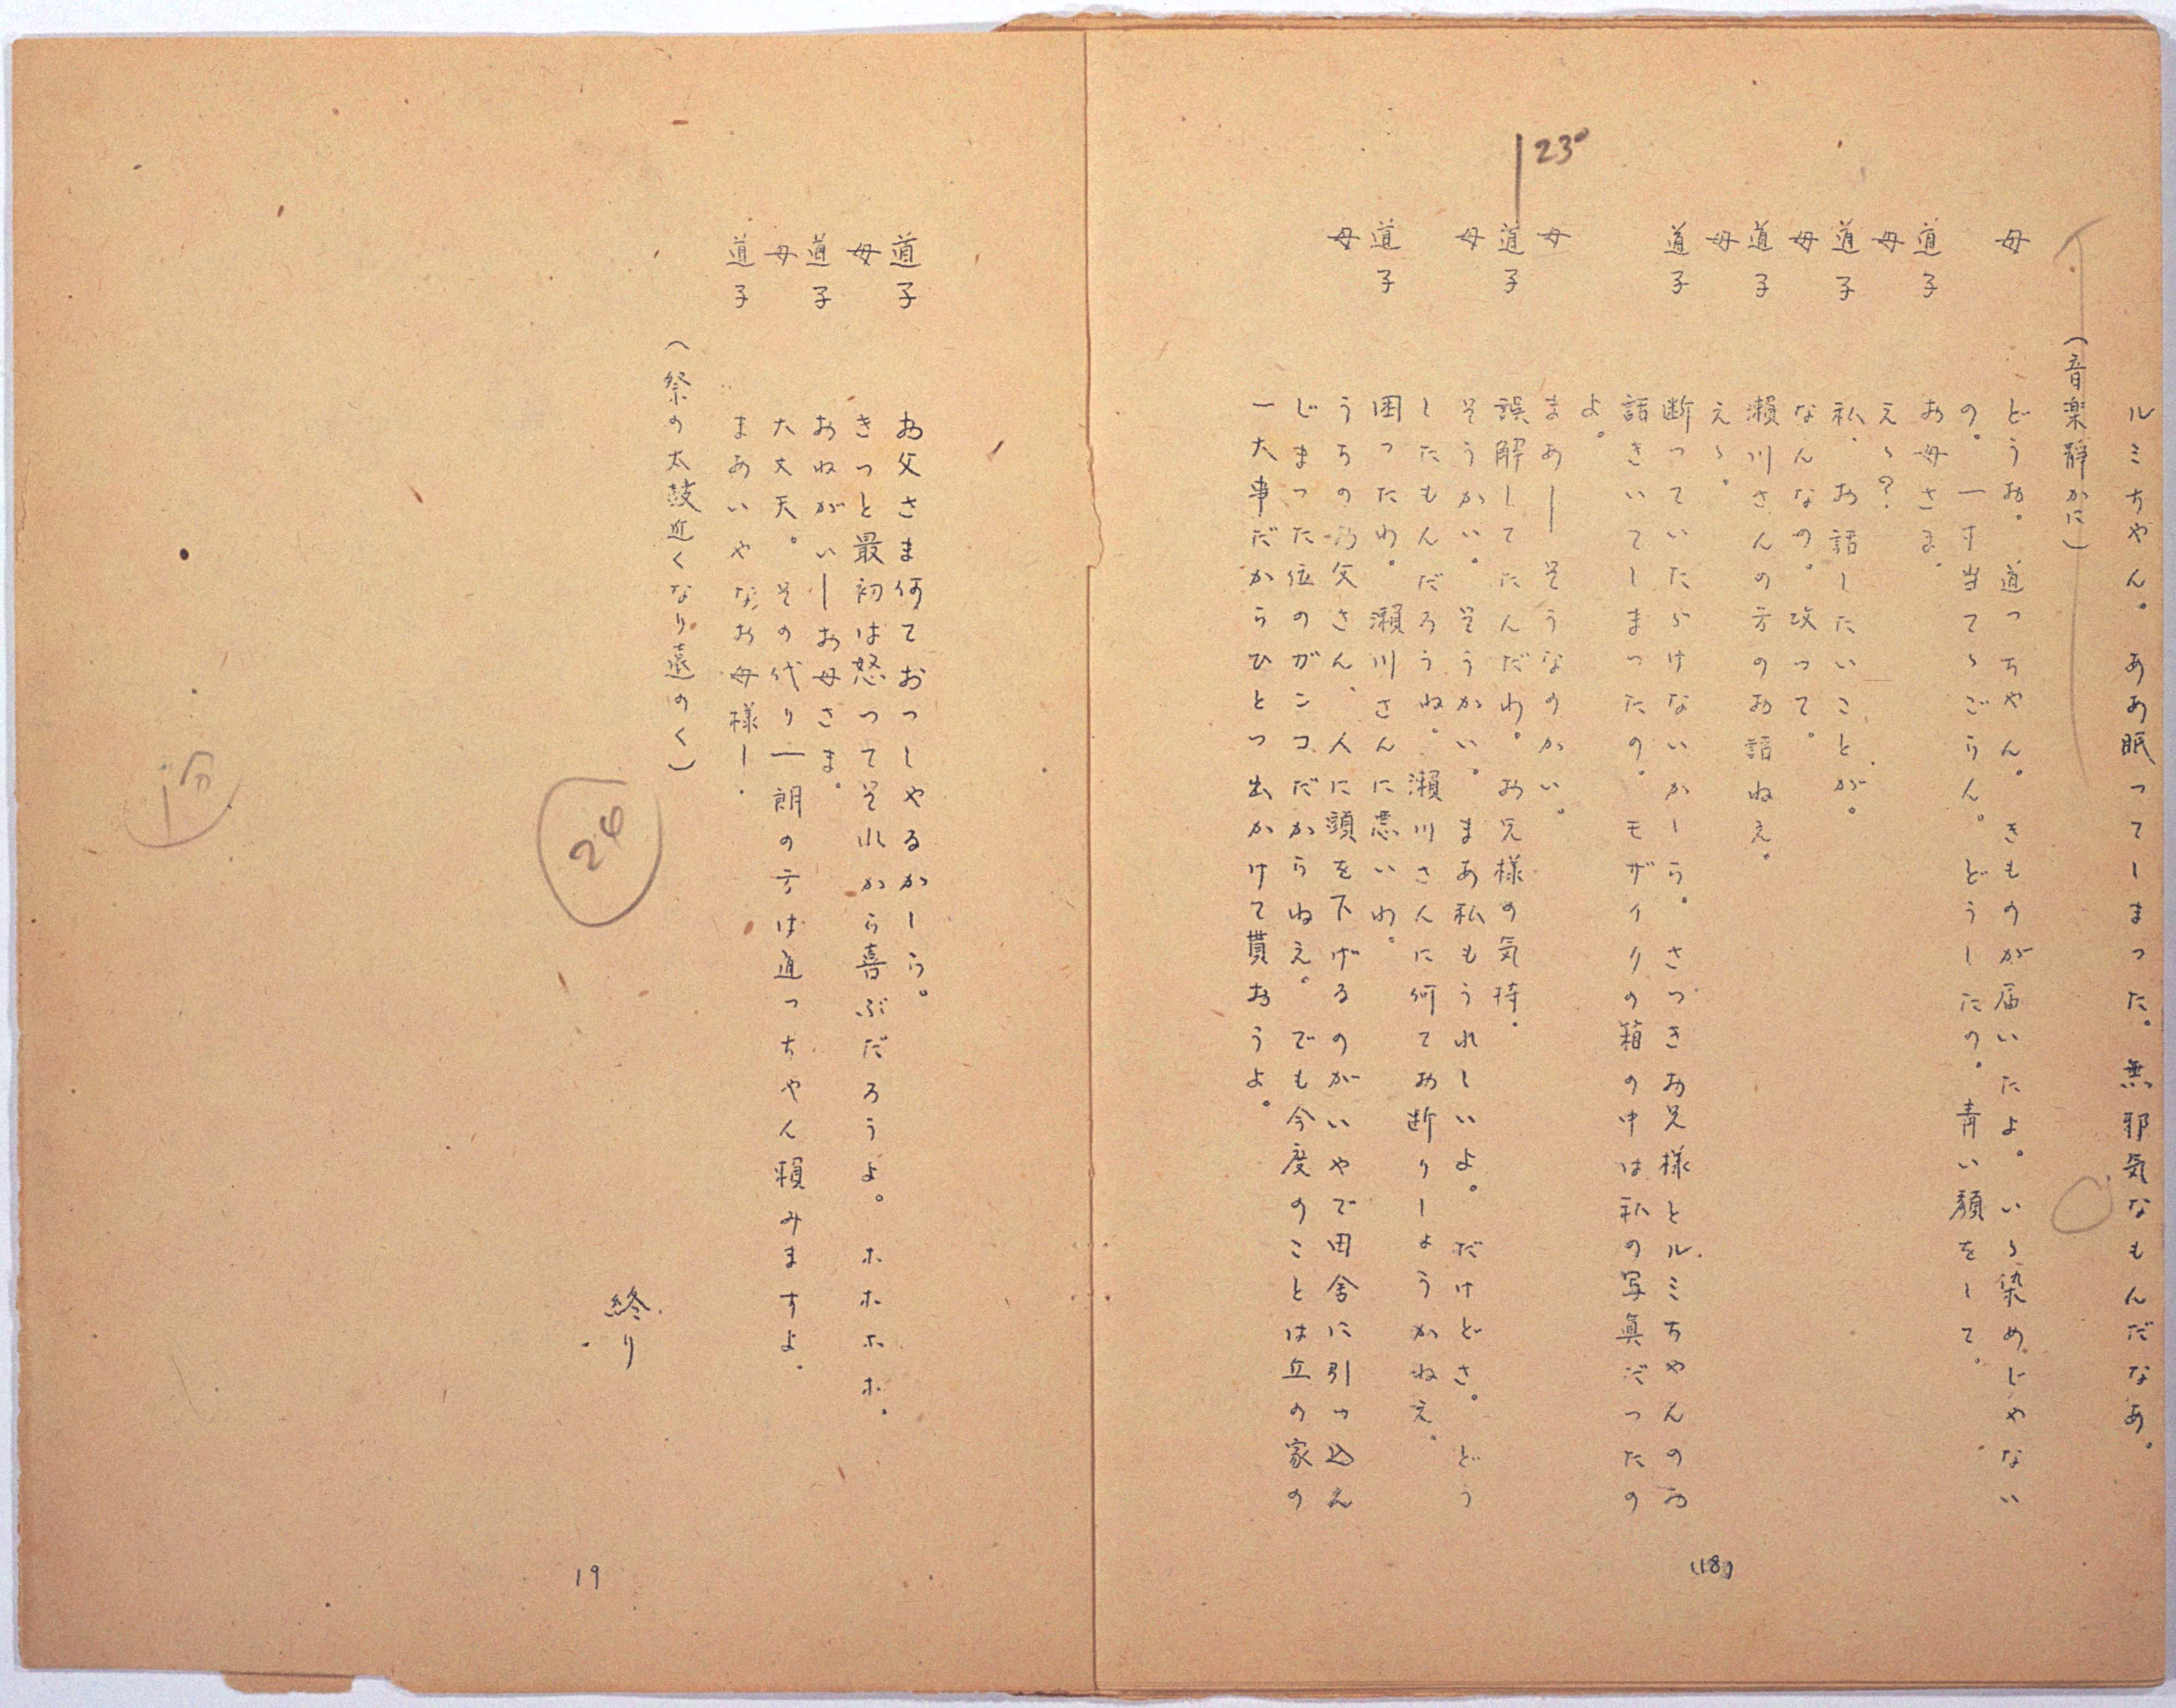 ルミちやん。ああ眠ってしまった。無邪気なもんだなあ。
（音楽靜かに）
母　どうお。道っちゃん。きものが届いたよ。いゝ染めじゃない
の。一寸当てゝごらん。どうしたの。青い顔をして。
道子　お母さま。
母　えゝ？
道子　私、お話したいことが。
母　なんなの。改って。
道子　瀬川さんの方のお話ねえ。
母　えゝ。
道子　断っていたゞけないかしら。さっきお兄様とルミちやんのお
話きいてしまったの。モザイクの箱の中は私の写真だったの
よ。
母　まあ―そうなのかい。
23°
道子　誤解してたんだわ。お兄様の気持。
母　そうかい。そうかい。まあ私もうれしいよ。だけどさ。どう
したもんだろうね。瀬川さんに何てお断りしようかねえ。
道子　困ったわ。瀬川さんに悪いわ。
母　うちのお父さん、人に頭を下げるのがいやで田舎に引っ込ん
じまった位のガンコだからねえ。でも今度のことは丘の家の
一大事だからひとつ出かけて貰おうよ。
(18)
道子　お父さま何ておっしやるかしら。
母　きっと最初は怒ってそれから喜ぶだろうよ。ホホホホ。
道子　おねがい―お母さま。
母　大丈夫。その代り一朗の方は道っちやん頼みますよ。
道子　まあいやなお母様―.
（祭の太鼓近くなり遠のく）
24
終り
1分
19